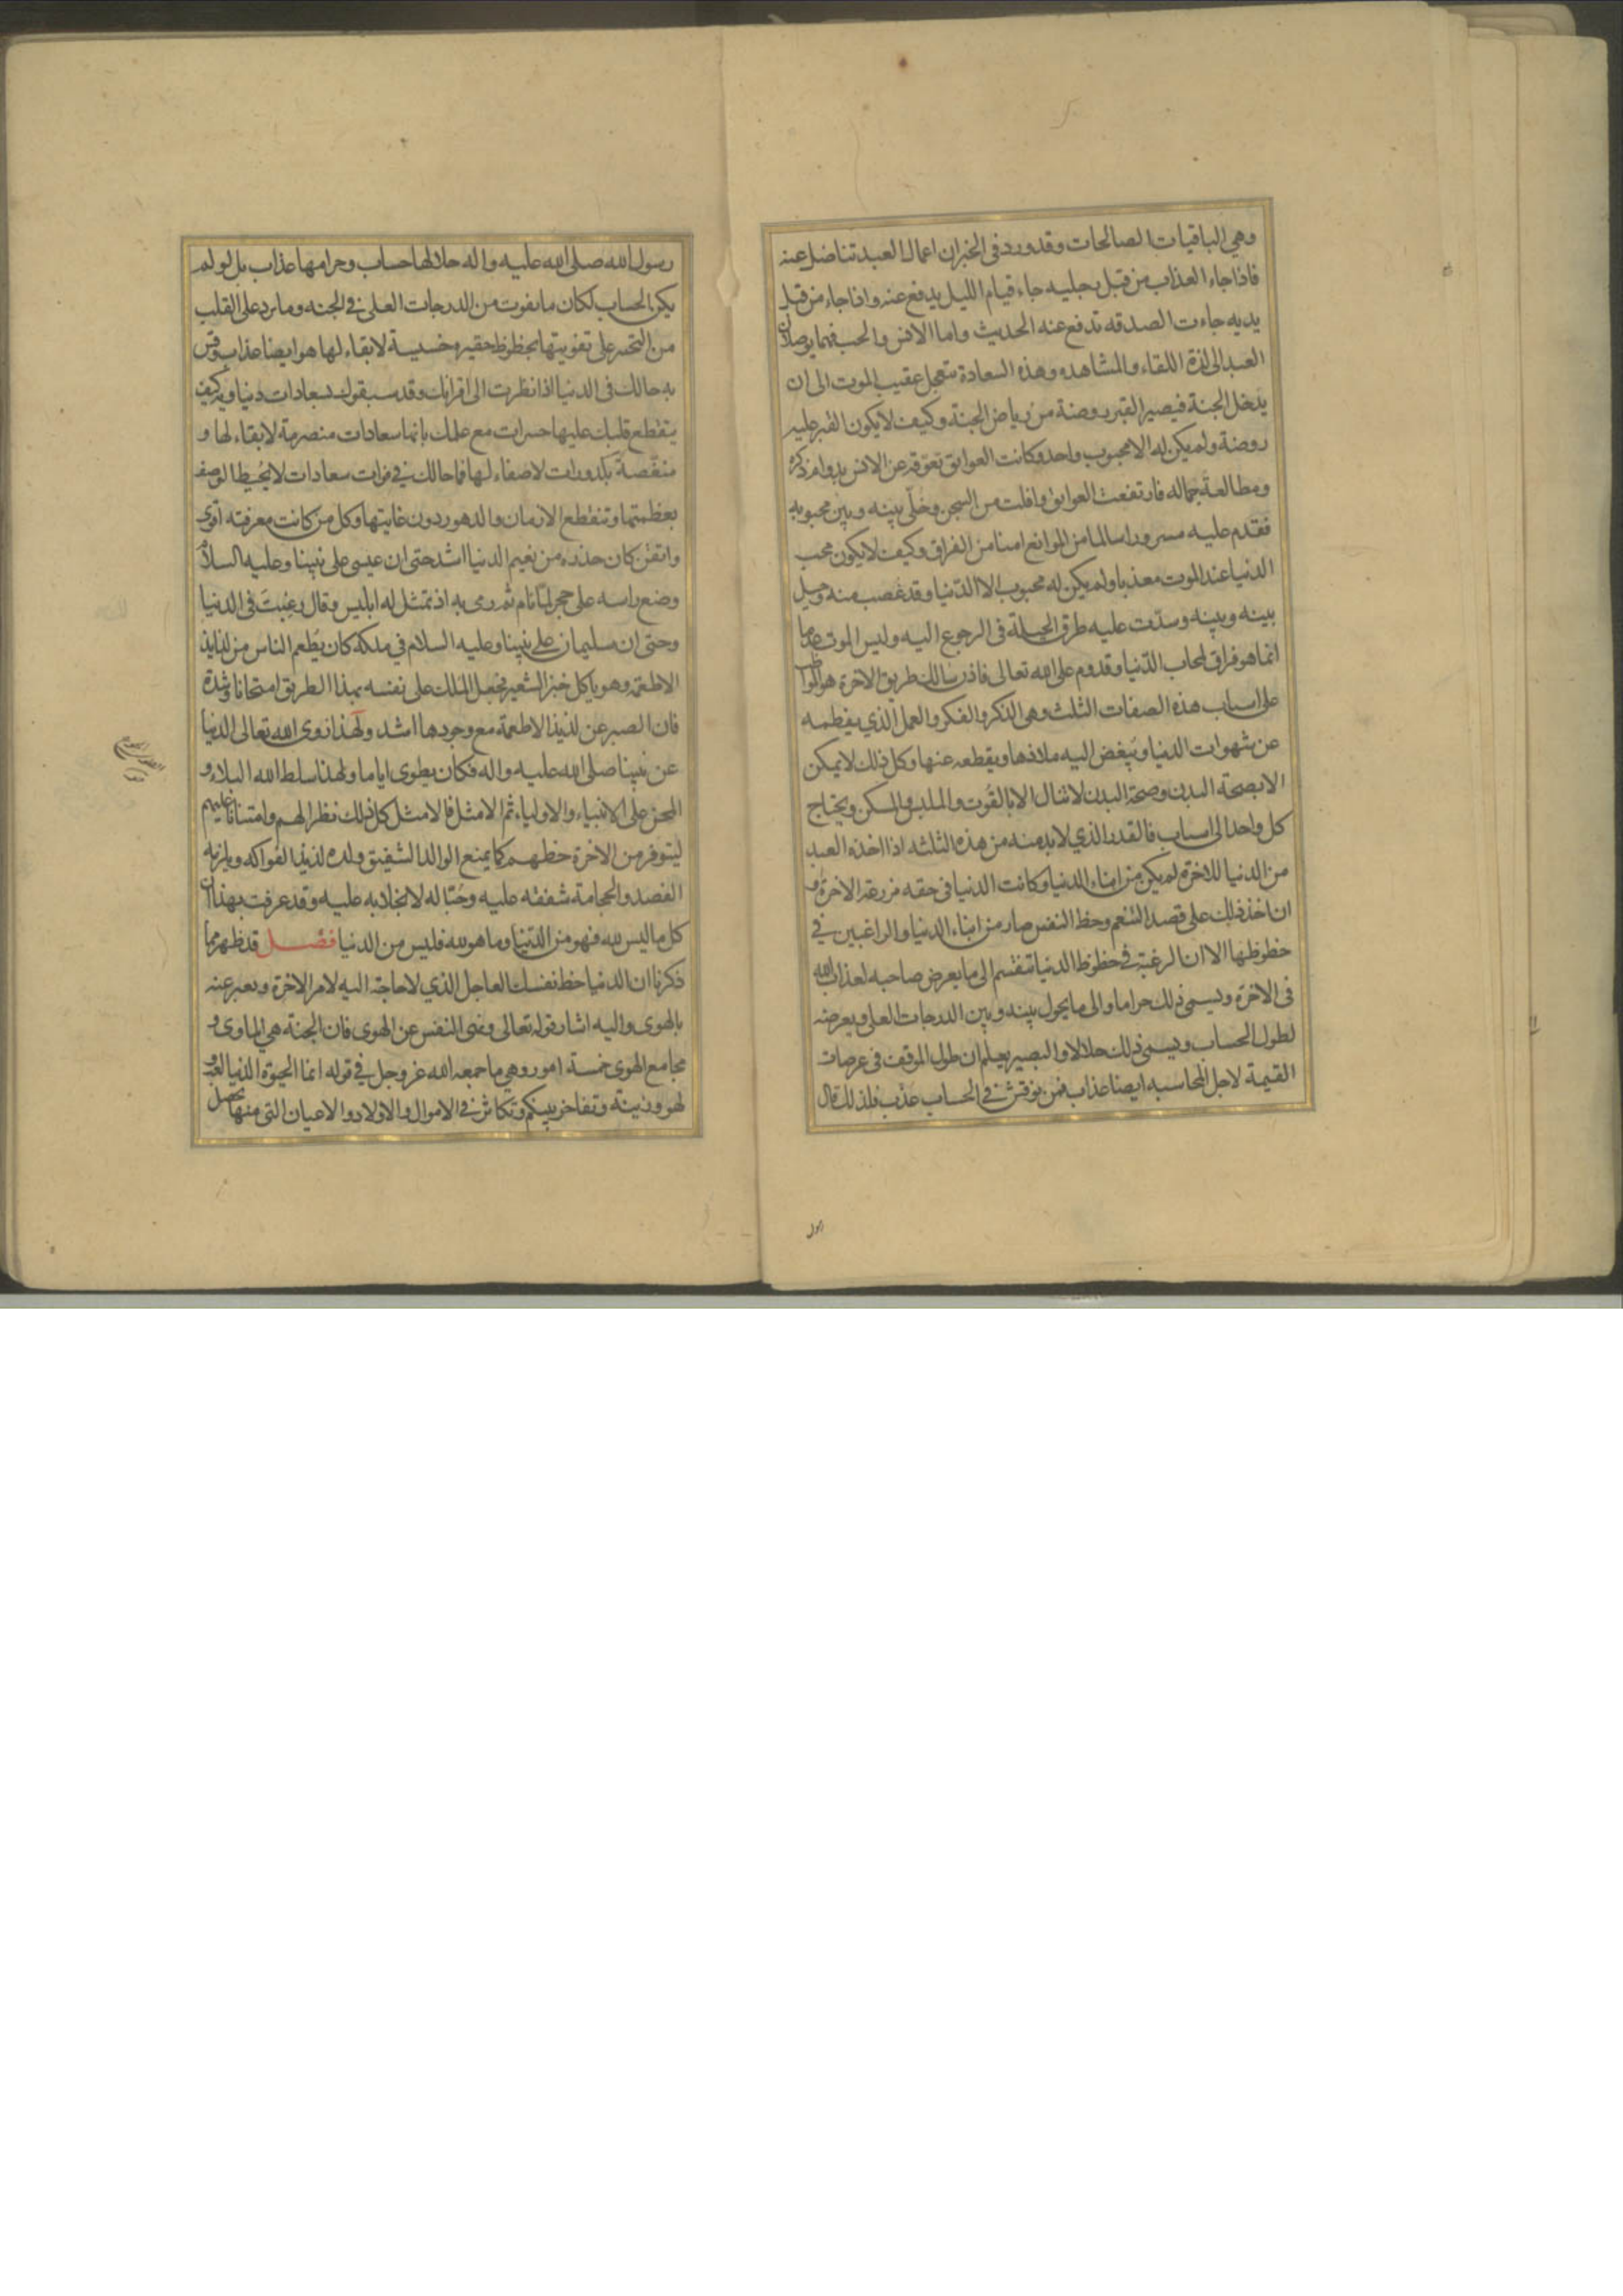 وهي الباقيات الصالحات وقد ورد في الخبر ان اعمال العبد تناضل عنه
فاذا جاء العذاب من قبل رجليه جاء قيام الليل يدفع عنه واذا جاء من قبل
يديه جاءت الصدقه تدفع عنه الحديث واما الانس والحب فهما يوصلان
العبد الى لذة اللقاء والمشاهده وهذه السعادة تتعجل عقيب الموت الى ان
يدخل الجنة فيصير القبر روضة من رياض الجنة وكيف لا يكون القبر عليه
روضة ولم يكن له الا محبوب واحد وكانت العوايق تعوقه عن الانس بدوام ذكره
ومطالعة جماله فارتفعت العوايق وافلت من السجن وخلّي بينه وبين محبوبه
فقدم عليه مسرورا سالما من الموانع امنا من الفراق وكيف لا يكون محب
الدنيا عند الموت معذبا ولم يكن له محبوب الا الدّنيا وقد غصب منه وحيل
بينه وبينه وسدّت عليه طرق الحيلة في الرجوع اليه وليس الموت عدما
انما هو فراق لمحاب الدّنيا وقدوم على الله تعالى فاذن سالك طريق الاخرة هو المواظب
على اسباب هذه الصفات الثلث وهي الذكر والفكر والعمل الذي يفطمه
عن شهوات الدنيا ويبغض اليه ملاذها ويقطعه عنها وكل ذلك لا يمكن
الا بصحة البدن وصحة البدن لا تنال الا بالقُوت والملبس والمسكن ويحتاج
كل واحد الى اسباب فالقدر الذي لا بد منه من هذه الثلثه اذا اخذه العبد
من الدنيا للاخرة لم يكن من ابناء الدنيا وكانت الدنيا في حقه مزرعة الاخرة و
ان اخذ ذلك على قصد التنعم وحظ النفس صار من ابناء الدنيا والراغبين في
حظوظها الا ان الرغبة في حظوظ الدنيا تنقسم الى ما يعرض صاحبه لعذاب الله
في الاخرة ويسمى ذلك حراما والى ما يحول بينه وبين الدرجات العلى ويعرضه
لطول الحساب ويسمى ذلك حلالا والبصير يعلم ان طول الموقف في عرصات
القيمة لاجل المحاسبه ايضا عذاب فمن نوقش في الحساب عذّب فلذلك قال
رسول الله صلى الله عليه واله حلالها حساب وحرامها عذاب بل لو لم
يكن الحساب لكان ما يفوت من الدرجات العلى في الجنه وما يرد على القلب
من التحسر على تفويتها بحظوظ حقيره خسيسة لا بقاء لها هو ايضا عذاب وقس
به حالك في الدنيا اذا نظرت الى اقرانك وقد سبقوك بسعادات دنياويه كيف
يتقطع قلبك عليها حسرات مع علمك بانها سعادات منصرمة لا بقاء لها و
منغّصة بكدورات لا صفاء لها فما حالك في فوات سعادات لا يحيط الوصف
بعظمتها وتنقطع الازمان والدهور دون غايتها وكل من كانت معرفته اقوى
واتقن كان حذره من نعيم الدنيا اشد حتى ان عيسى على نبينا وعليه السلام
وضع راسه على حجر لمّا نام ثم رمى به اذ تمثل له ابليس وقال رغبتَ في الدنيا
وحتى ان سليمان على نبينا وعليه السلام في ملكه كان يُطعم الناس من لذايذ
الاطعمة وهو ياكل خبز الشعير فجعل الملك على نفسه بهذا الطريق امتحانا وشدة
فان الصبر عن لذيذ الاطعمة مع وجودها اشد ولهذا زوى الله تعالى الدنيا
عن نبينا صلى الله عليه واله فكان يطوى اياما ولهذا سلط الله البلاء و
المحن على الانبياء والاولياء ثم الامثل فالامثل كل ذلك نظرا لهم وامتنانا عليهم
ليتوفر من الاخرة حظهم كما يمنع الوالد الشفيق ولده لذيذ الفواكه ويلزمه
الفصد والحجامة شفقه عليه وحُبّا له لا بخلا به عليه وقد عرفت بهذا ان
كل ما ليس لله فهو من الدّنيا وما هو لله فليس من الدنيا فصل قد ظهر مما
ذكرنا ان الدنيا حظ نفسك العاجل الذي لا حاجة اليه لامر الاخرة ويعبر عنه
بالهوى واليه اشار قوله تعالى ونهى النفس عن الهوى فان الجنة هي الماوى و
مجامع الهوى خمسة امور وهي ما جمعه الله عز وجل في قوله انما الحيوة الدنيا لعب و
لهو وزينة وتفاخر بينكم وتكاثر في الاموال والاولاد والاعيان التي منها تحصل